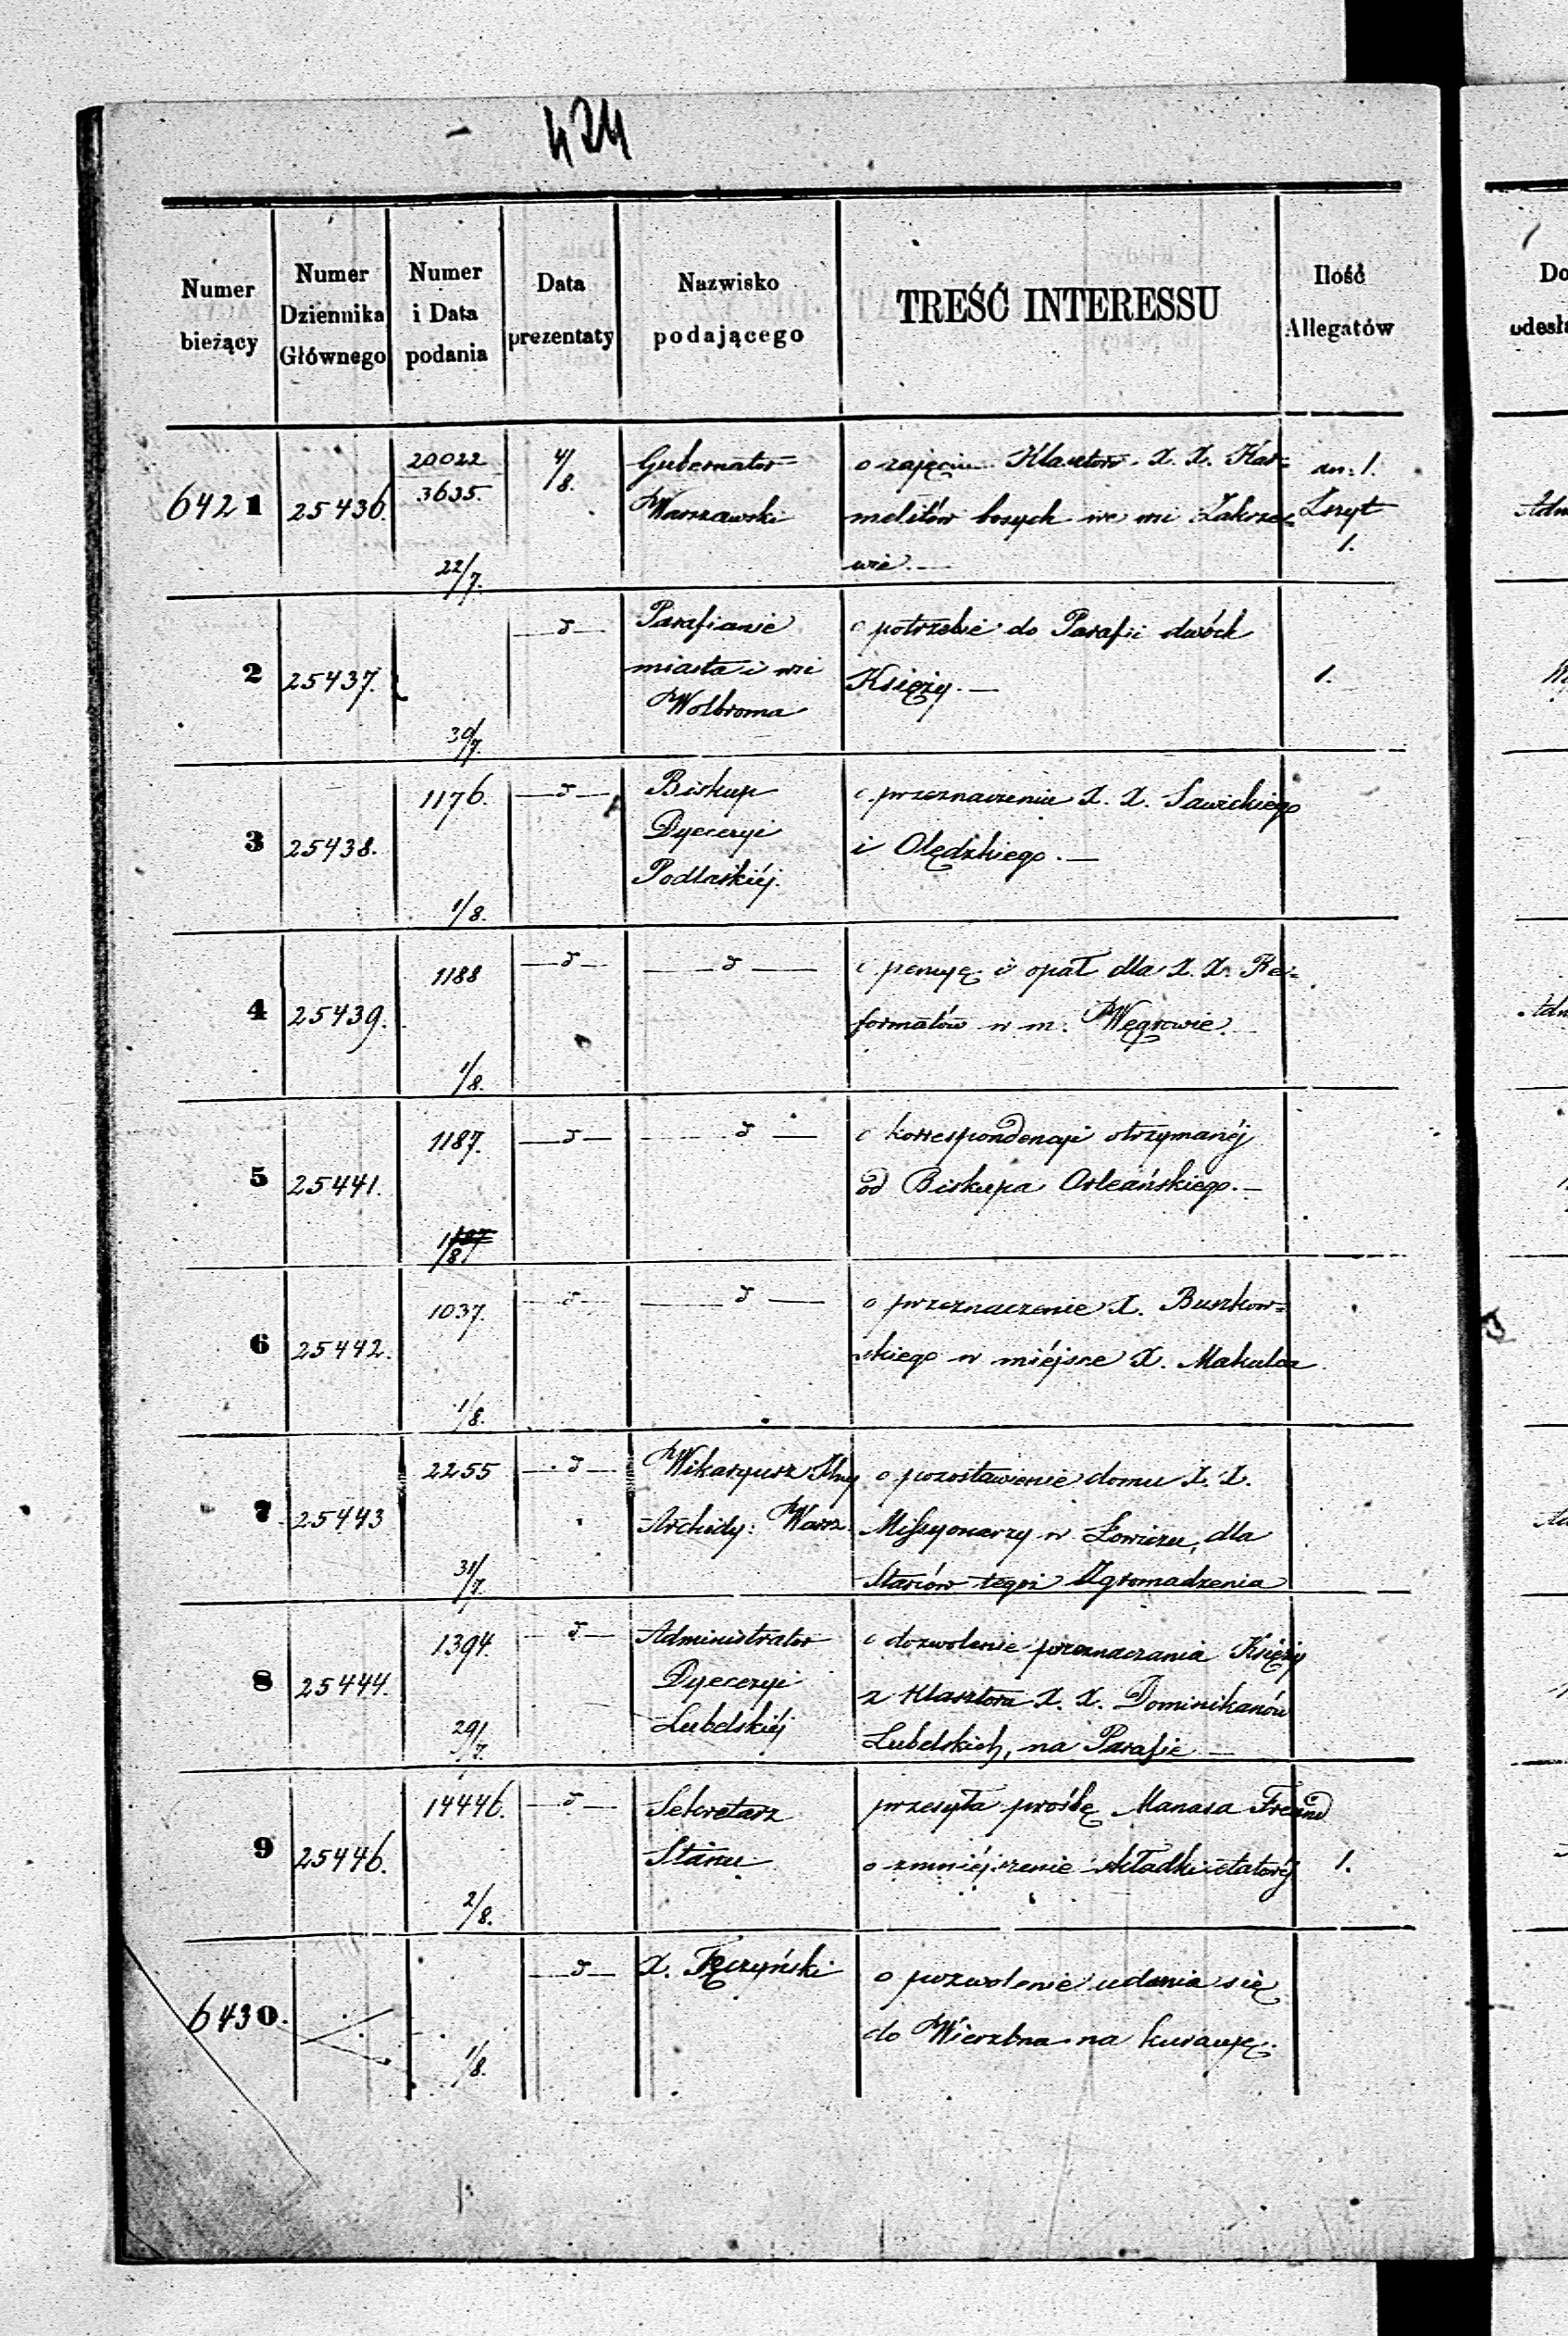 424
Numer bieżący
Numer Dziennika Głównego
Numer i Data podania
Data prezentaty
Nazwisko podającego
TREŚĆ INTERESSU
Ilość Allegatów
6421 25436. 20022/3635. 22/7. 4/8. Gubernator Warszawski
o zajęciu Klasztoru X. X. Kar=
melitów bosych we wsi Zakrze=
wie. —
an: 1.
Zszyt
1.
2 25437. 30/7. —d— Parafianie
miasta i wsi
Wolbroma
o potrzebie do Parafii dwóch
Księży. —
1.
3 25438. 1176. 1/8. —d— Biskup
Dyecezyi
Podlaskiéj.
o przeznaczeniu X. X. Sawickiego
i Olędzkiego. —
4 25439. 1188 1/8. —d— —d—
o pensyę i opał dla X. X. Re=
formatów w m. Węgrowie.
5 25441. 1187. 1/8. —d— —d—
o korrespondencyi otrzymanéj
od Biskupa Orleańskiego. —
6 25442. 1037. 1/8. —d— —d—
o przeznaczenie X. Buszkow=
skiego w miéjsce X. Makulca
7 25443 2255 31/7. —d— Wikaryusz
Archidy: Warsz.
o pozostawienie domu X. X.
Missyonarzy w Łowiczu, dla
Starców tegoż Zgromadzenia
8 25444. 1394. 29/7. —d— Administrator
Dyecezyi
Lubelskiéj
o dozwolenie przeznaczania Księży
z Klasztoru X. X. Dominikanów
Lubelskich, na Parafie —
9 25446. 14446. 2/8. —d— Sekretarz
Stanu
przesyła prośbę Manasa Freund
o zmniéjszenie składki etatowéj
1.
6430. 1/8. —d— X. Tęczyński
o pozwolenie udania się
do Wierzbna na kuracyę.